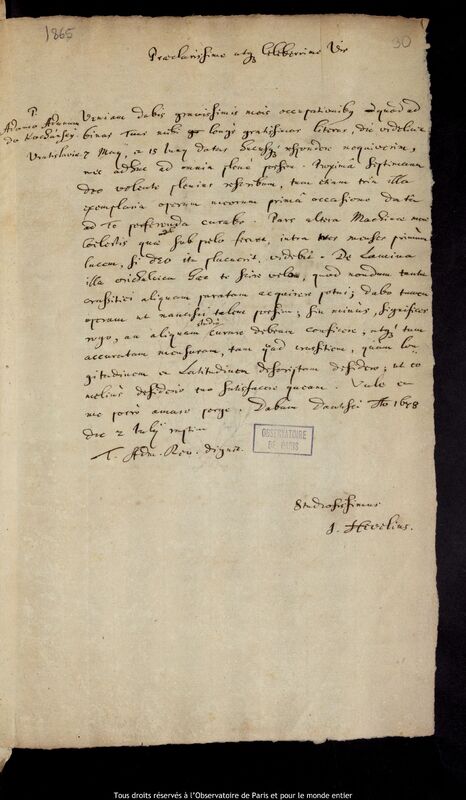 1865
30
Præclarissime atq; Celeberrime Vir
P. Adamo Adamun
do Kochansky
Veniam dabis gravissimis meis occupationibus quod ad
binas Tuas mihi longe gratissimas literas, die videlicet
Vratislaviæ 7 May, a 15 Juny datas hucusq; respondere nequiverim,
nec adhuc ad omnia plene possim. Proxima Septimana
Deo volente plenius rescribam, tum etiam tria illa
exemplaria operum meorum prima occasione data
ad Te perferenda curabo. Pars altera Machinæ meæ
Cœlestis quæ sub prelo ferve, intra tres menses primum
lucem, si DEO ita placuerit, videbit. De Lamina
illa orichalcica hac te scire velim, quod nondum tantæ
crassitiei aliquam paratam acquirere potui; dabo tamen
operam ut nancisci talem possim; sin minus, significes
rogo, an aliquam studio curare debeam conficere, atq; tum
accuratam mensuram, tam quoad crassitiem, quam lon
gitudinem et Latitudinem descriptam desidero; ut eo
melius desiderio tuo satisfacere queam. Vale et
me porro amare perge. Dabam Dantisci Ao 1678
die 2 July
T. Adm. Rev. dignit.
OBSERVATOIRE
DE PARIS
Studiosissimus
J. Hevelius.
Tous droits réservés à l'Observatoire de Paris et pour le monde entier